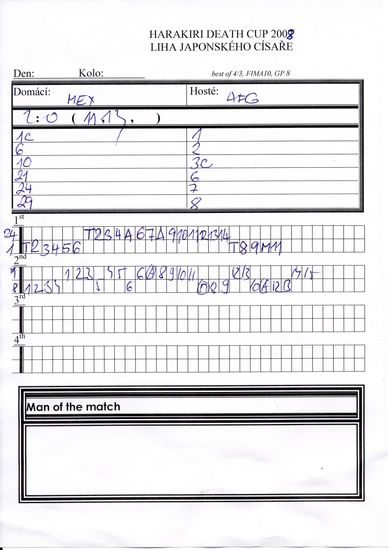 HARAKIRI DEATH CUP 2008
LIHA JAPONSKÉHO CÍSAŘE
Den: Kolo: best of 4/3, FIMA10, GP 8
Domácí: MEX Hosté: AFG
2:0 (11,13, )
1C 1
6 2
10 3C
21 6
24 7
29 8
1st
24 T234A67A91011121314
1 T23456 T89M11
2nd
9 123 45 6
8 1234 5 6 89
3rd
4th
Man of the match